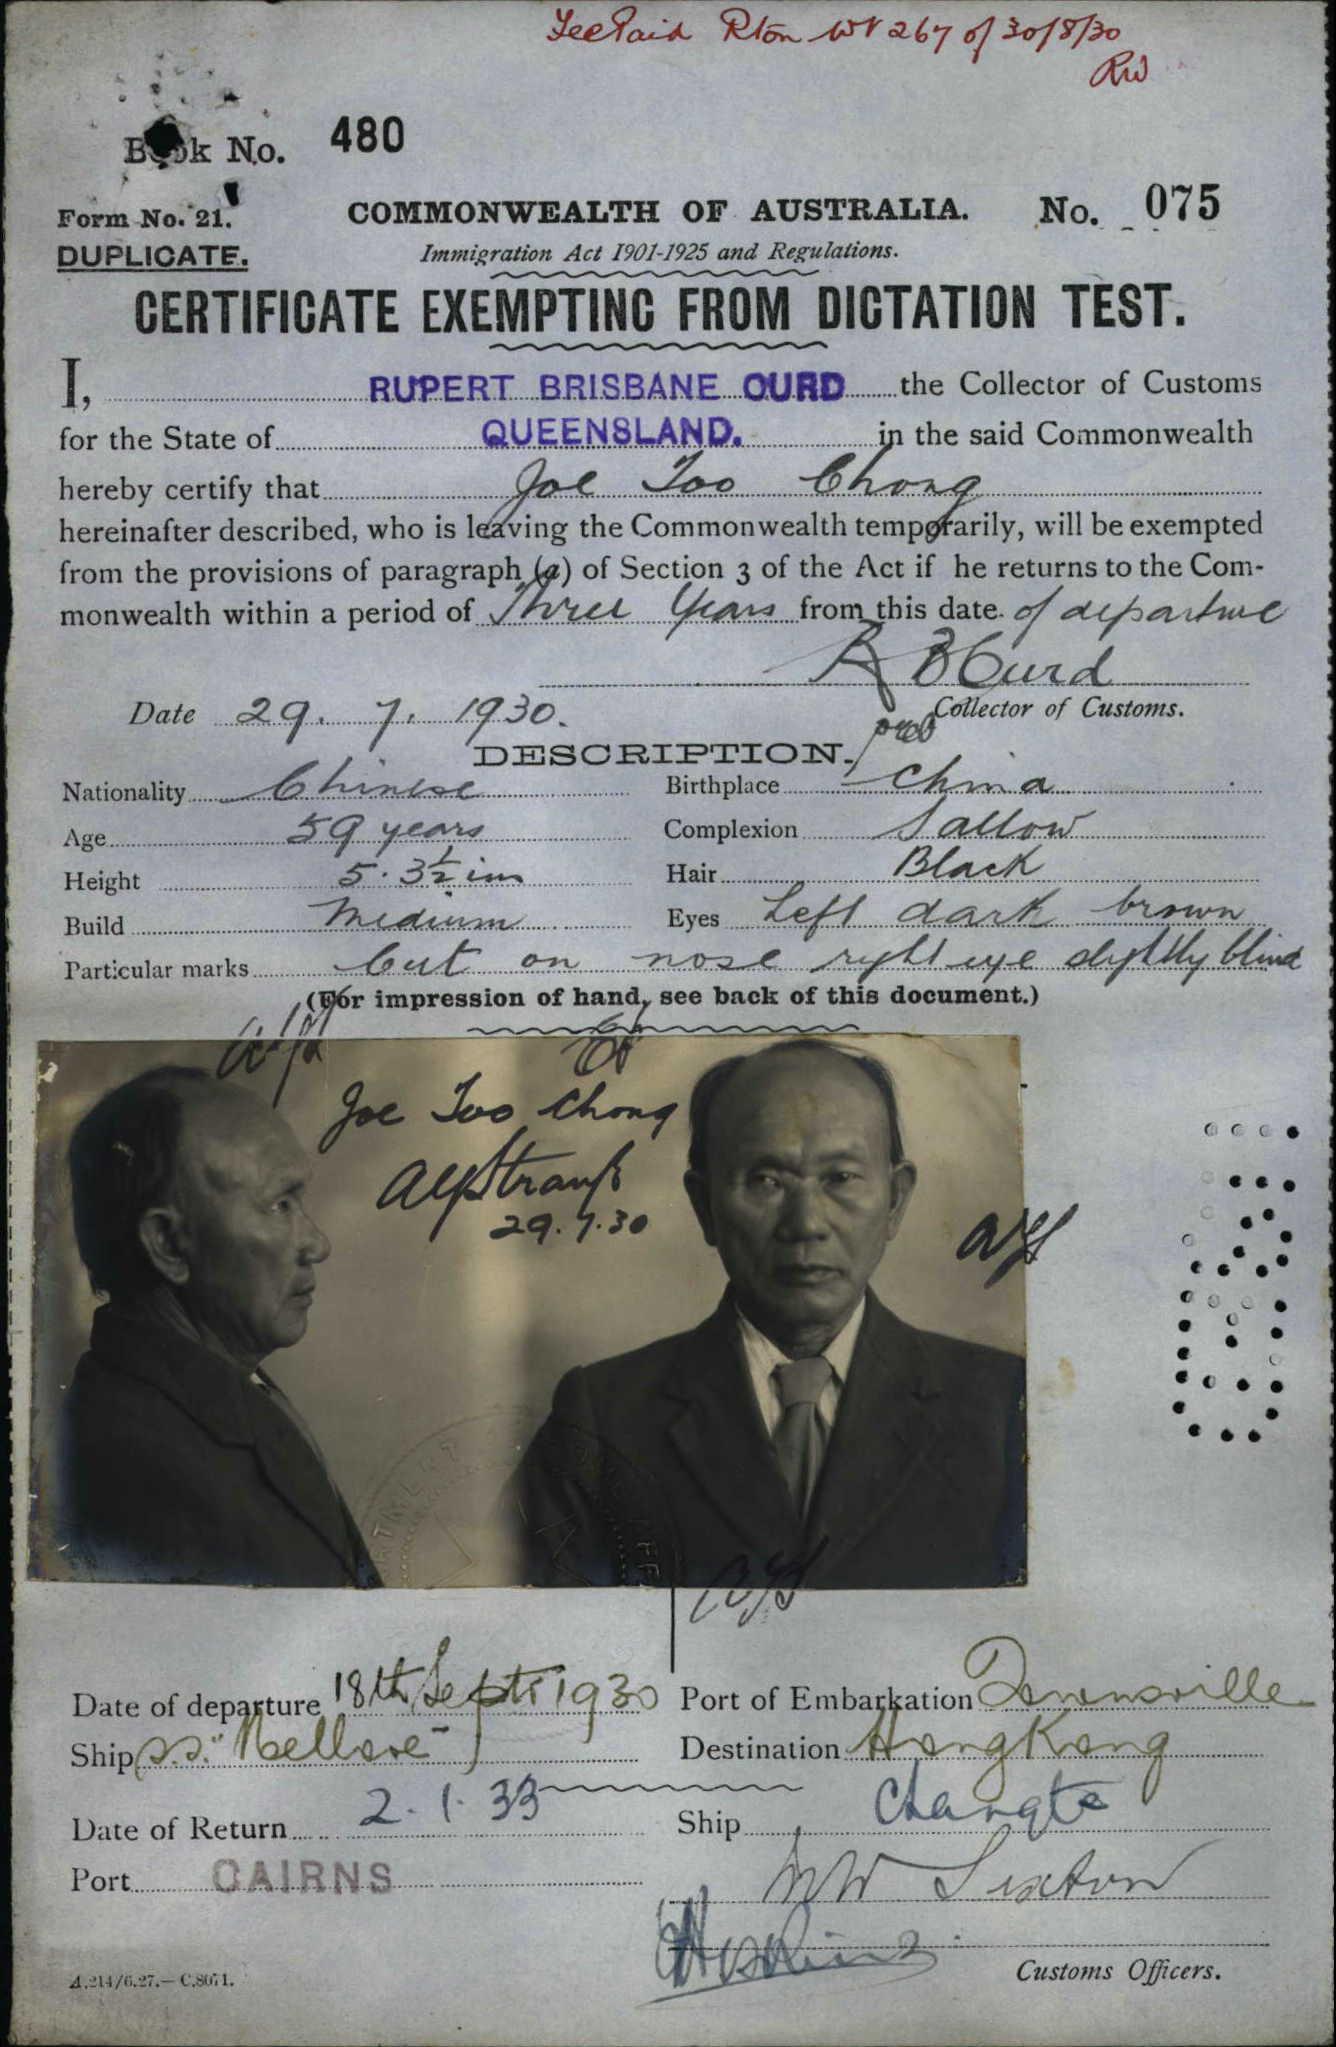 Fee Paid Rton WT 267 of 30/8/30
RW
Book No. 480
Form No. 21.
DUPLICATE.
COMMONWEALTH OF AUSTRALIA.
No. 075
Immigration Act 1901-1925 and Regulations.
CERTIFICATE EXEMPTING FROM DICTATION TEST.
I, RUPERT BRISBANE CURD the Collector of Customs
for the State of QUEENSLAND. in the said Commonwealth
hereby certify that Joe Too Chong
hereinafter described, who is leaving the Commonwealth temporarily, will be exempted
from the provisions of paragraph (a) of Section 3 of the Act if he returns to the Com-
monwealth within a period of Three Years from this date of departure
R B Curd
Collector of Customs.
Date 29. 7. 1930.
DESCRIPTION.
Nationality Chinese Birthplace China
Age 59 years Complexion Sallow
Height 5. 3½ ins Hair Black
Build Medium Eyes Left dark brown
Particular marks Cut on nose right eye slightly blind
(For impression of hand, see back of this document.)
Joe Too Chong
29.7.30
Date of departure 18th Sept 1930 Port of Embarkation Townsville
Ship s.s. "Nellore" Destination Hong Kong
Date of Return 2.1.33 Ship Changte
Port CAIRNS
Customs Officers.
A.214/6.27.—C.8071.